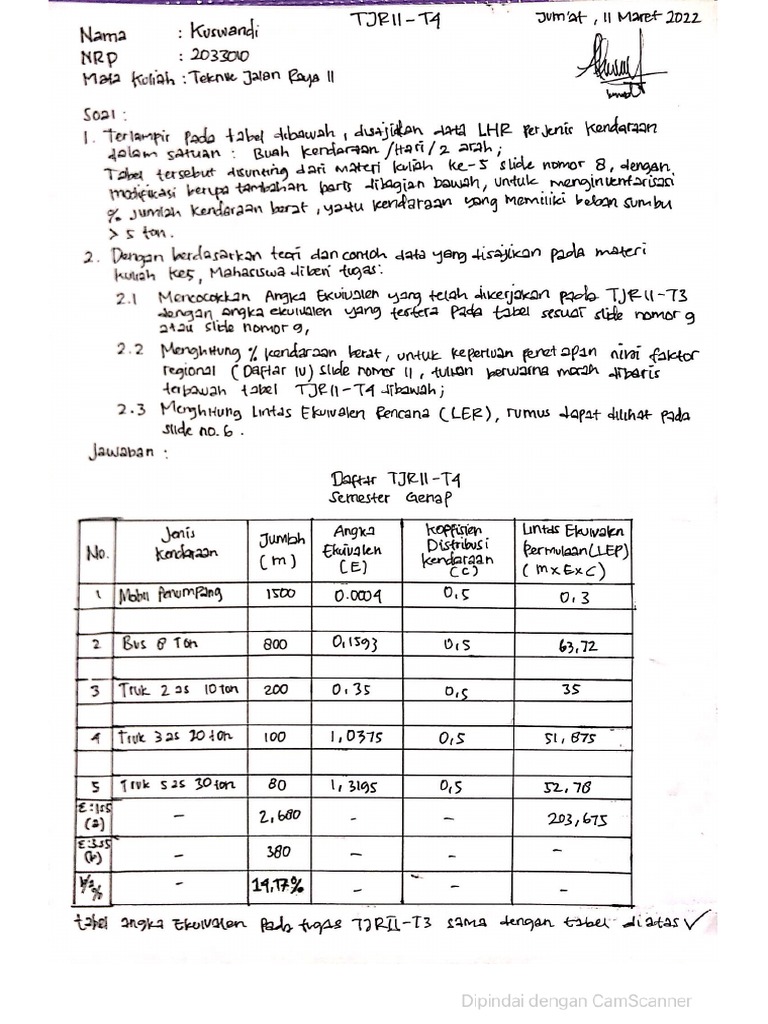 TJRII-T4
Jum'at, 11 Maret 2022
Nama : Kuswandi
NRP : 2033010
Mata Kuliah : Teknik Jalan Raya II
Soal :
1. Terlampir pada tabel dibawah, disajikan data LHR perjenis kendaraan
dalam satuan : Buah kendaraan /Hari/2 arah;
Tabel tersebut disunting dari materi kuliah ke-5 slide nomor 8, dengan
modifikasi berupa tambahan baris dibagian bawah, untuk menginventarisasi
% jumlah kendaraan berat, yaitu kendaraan yang memiliki beban sumbu
> 5 ton.
2. Dengan berdasarkan teori dan contoh data yang disajikan pada materi
kuliah ke5, Mahasiswa diberi tugas:
2.1 Mencocokkan Angka Ekuivalen yang telah dikerjakan pada TJRII-T3
dengan angka ekuivalen yang tertera pada tabel sesuai slide nomor 9
atau slide nomor 9,
2.2 Menghitung % kendaraan berat, untuk keperluan penetapan nilai faktor
regional (Daftar IV) slide nomor 11, tulisan berwarna merah dibaris
terbawah tabel TJRII-T4 dibawah;
2.3 Menghitung Lintas Ekuivalen Rencana (LER), rumus dapat dilihat pada
slide no.6.
Jawaban :
Daftar TJRII-T4
Semester Genap
No. Jenis Kendaraan Jumlah (m) Angka Ekuivalen (E) Koffisien Distribusi kendaraan (C) Lintas Ekuivalen Permulaan (LEP) (m x E x C)
1 Mobil Penumpang 1500 0.0004 0,5 0,3
2 Bus 8 Ton 800 0,1593 0,5 63,72
3 Truk 2 as 10 ton 200 0,35 0,5 35
4 Truk 3 as 20 ton 100 1,0375 0,5 51,875
5 Truk 5 as 30 ton 80 1,3195 0,5 52,78
Σ:1s5 (a) - 2,680 - - 203,675
Σ:3s5 (b) - 380 - - -
b/a % - 14.17% - - -
tabel angka Ekuivalen pada tugas TJRII-T3 sama dengan tabel diatas ✓
Dipindai dengan CamScanner